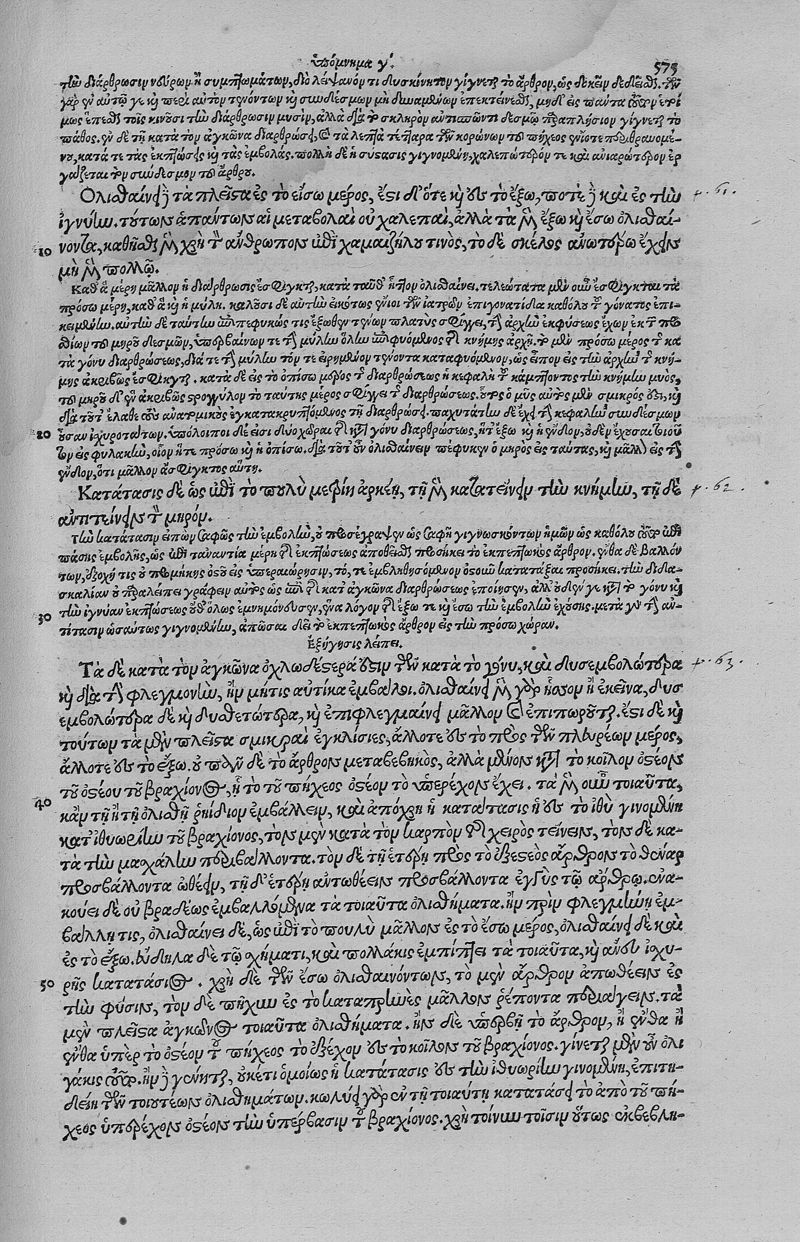 ὑπόμνημα γ΄. 575
τὴν διάρθρωσιν νεύρων ἢ συμπτωμάτων, διὸ λείψανόν τι δυσκίνητον γίγνεται τὸ ἄρθρον, ὡς δοκεῖν δεδέσθαι. τῶν
γὰρ ἐν αὐτῷ γε καὶ περὶ αὐτὸν τενόντων καὶ συνδέσμων μὴ δυναμένων ἐπεκτείνεσθαι, μηδ' εἰς ταῦτα
τοῖς κινοῦσι τὴν διάρθρωσιν μυσὶν, ἀλλὰ διὰ τὸ σκληρὸν ἀντισπῶντι δεσμῷ παραπλήσιον γίγνεται τὸ
πάθος. ἐν δὲ τῇ κατὰ τὸν ἀγκῶνα διαρθρώσει, καὶ τὰ λεπτὰ πέρατα τῶν κορώνων τοῦ πήχεος ἐνίοτε περιθραυομέ-
νου, κατά τε τὰς ἐκπτώσεις καὶ τὰς ἐμβολάς. πολλὴ δὲ ἡ σύστασις γιγνομένη, χαλεπώτερόν τε καὶ ἀνιαρώτερον ἐρ
γάζεται τὸν σύνδεσμον τοῦ ἄρθρου.
Ὀλισθαίνει δὲ τὰ πλεῖστα ἐς τὸ εἴσω μέρος, ἔστι δ' ὅτε καὶ ἐς τὸ ἔξω, ποτὲ δὲ καὶ ἐς τὴν 61.
ἰγνύην. τούτων ἁπάντων αἱ μεταβολαὶ οὐ χαλεπαὶ, ἀλλὰ τὰ μὲν ἔξω καὶ ἔσω ὀλισθαί-
10 νοντα, καθῆσθαι μὲν χρὴ τὸν ἄνθρωπον ἐπὶ χαμαιζήλου τινὸς, τὸ δὲ σκέλος ἀνωτέρω ἔχειν
μὴ μὲν πολλῷ.
Καθ' ἃ μέρη μᾶλλον ἡ διάρθρωσις ἔσφιγκται, κατὰ ταῦθ' ἧττον ὀλισθαίνει. τελεώτατα μὲν οὖν ἔσφιγκται τὰ
πρόσω μέρη, καθ' ἃ καὶ ἡ μύλη. καλοῦσι δὲ αὐτὴν εἰκότως ἔνιοι τῶν ἰατρῶν ἐπιγονατίδα καθόλου τοῦ γόνατος ἐπι-
κειμένην. αὐτὴν δὲ ταύτην περιπεφυκώς τις ἔξωθεν τένων πλατὺς σφίγγει, τὴν ἀρχὴν ἐκφύσεως ἔχων ἐκ τῶν προ
σθίων τοῦ μηροῦ δεσμῶν, ὑπερβαίνων τε τὴν μύλην ὅλην περιφυόμενος τῇ τῆς κνήμης ἀρχῇ. τὸ μὲν πρόσω μέρος τῆς κα
τὰ γόνυ διαρθρώσεως, διά τε τὴν μύλην τόν τε εἰρημένον τένοντα καταφυόμενον, ὡς εἶπον εἰς τὴν ἀρχὴν τῆς κνή-
μης ἀκριβῶς ἔσφιγκται. κατὰ δὲ εἰς τὸ ὀπίσω μέρος τῆς διαρθρώσεως ἡ κεφαλὴ τοῦ κάμπτοντος τὴν κνήμην μυὸς,
τοῦ μηροῦ δ' ἐν ἀκριβῶς στρογγύλον τὸ ταύτης μέρος σφίγγει τῆς διαρθρώσεως. οὗτος ὁ μῦς αὐτὸς μὲν σμικρὸς ἔστι, καὶ
διὰ τοῦτ' ἔλαθε τοὺς ἀνατομικοὺς ἐγκατακρυπτόμενος τῇ διαρθρώσει. παχυτάτην δὲ ἔχει τὴν κεφαλὴν συνδέσμων
20 οὖσαν ἰσχυροτάτην. ὑπόλοιποι δέ εἰσι δύο χῶραι τῆς κατὰ γόνυ διαρθρώσεως, ἥ τ' ἔξω καὶ ἡ ἔνδον, οὐδὲν ἔχουσαι τοιοῦ
τον εἰς φυλακὴν, οἷον ἥ τε πρόσω καὶ ἡ ὀπίσω. διὰ τοῦτ' οὖν ὀλισθαίνειν πέφυκεν ὁ μηρὸς εἰς ταύτας, καὶ μᾶλλον εἰς τὴν
ἔνδον, ὅτι μᾶλλον ἄσφιγκτος αὕτη.
Κατάτασις δὲ ὡς ἐπὶ τὸ πουλὺ μετρίη ἀρκέει, τῇ μὲν κατατείνειν τὴν κνήμην, τῇ δὲ 62.
ἀντιτείνειν τὸν μηρόν.
Τὴν κατάτασιν εἰπὼν σαφῶς τὴν ἐμβολὴν, οὐ προσέγραψεν ὡς σαφῆ γιγνωσκόντων ἡμῶν ὡς καθόλου ἐπὶ
πάσης ἐμβολῆς, ὡς ἐπὶ τἀναντία μέρη τῆς ἐκπτώσεως ἀποθέσθαι προσήκει τὸ ἐκπεπτωκὸς ἄρθρον.
ἐξοχή τις οὐ προμήκης ὀστοῦ εἰς ὑπεραιώρησιν, τό, τε ἐμβληθησόμενον ὀστοῦν κατατάξαι προσήκει. τὴν διδα-
σκαλίαν οὐ παραλείπει γράφειν αὐτὸς ὡς ἐπὶ τῆς κατ' ἀγκῶνα διαρθρώσεως ἐποίησεν, ἀλλ' οὐδὲν γε κατὰ τὸ γόνυ καὶ
τὴν ἰγνύαν ἐκπτώσεως οὐδ' ὅλως ἐμνημόνευσεν, ἕνα λόγον τῆς ἔξω τε καὶ ἔσω τὴν ἐμβολὴν ἐχούσης. μετὰ γοῦν τὴν ἀν-
30 τίτασιν ὡσαύτως γιγνομένην, ἀπῶσαι δεῖ τὸ ἐκπεπτωκὸς ἄρθρον εἰς τὴν πρόσω χώραν.
Ἐξήγησις λείπει.
Τὰ δὲ κατὰ τὸν ἀγκῶνα ὀχλωδέστερά ἐστιν τῶν κατὰ τὸ γόνυ, καὶ δυσεμβολώτερα 63.
καὶ διὰ τὴν φλεγμονὴν, ἢν μή τις αὐτίκα ἐμβάλοι. ὀλισθαίνει μὲν γὰρ ἧσσον ἢ ἐκεῖνα, δυσ
εμβολώτερα δὲ καὶ δυσθετώτερα, καὶ ἐπιφλεγμαίνει μᾶλλον καὶ ἐπιπωροῦται. ἔστι δὲ καὶ
τούτων τὰ μὲν πλεῖστα σμικραὶ ἐγκλίσιες, ἄλλοτε ἐς τὸ πρὸς τῶν πλευρέων μέρος,
ἄλλοτε ἐς τὸ ἔξω. οὐ πᾶν δὲ τὸ ἄρθρον μεταβεβηκὸς, ἀλλὰ μένον κατὰ τὸ κοῖλον ὀστέον
τοῦ ὀστέου τοῦ βραχίονος, ᾗ τὸ τοῦ πήχεος ὀστέον τὸ ὑπερέχον ἔχει. τὰ μὲν οὖν τοιαῦτα,
40 κἂν τῇ ἢ τῇ ὀλίσθῃ ῥηΐδιον ἐμβάλλειν, καὶ ἀπόχρη ἡ κατάτασις ἡ ἐς τὸ ἰθὺ γινομένη
κατ' ἰθυωρίην τοῦ βραχίονος, τὸν μὲν κατὰ τὸν καρπὸν τῆς χειρὸς τείνειν, τὸν δὲ κα-
τὰ τὴν μασχάλην περιβάλλοντα. τὸν δὲ τῇ ἑτέρῃ πρὸς τὸ ἐξεστεὸς ἄρθρον τὸ θέναρ
προσβάλλοντα ὠθέειν, τῇ δ' ἑτέρῃ ἀντωθέειν προσβάλλοντα ἐγγὺς τῷ ἄρθρῳ. ἐνα-
κούει δὲ οὐ βραδέως ἐμβαλλόμενα τὰ τοιαῦτα ὀλισθήματα. ἢν πρὶν φλεγμήνῃ ἐμ-
βάλλῃ τις, ὀλισθαίνει δὲ, ὡς ἐπὶ τὸ πουλὺ μᾶλλον ἐς τὸ ἔσω μέρος, ὀλισθαίνει δὲ καὶ
ἐς τὸ ἔξω. εὔδηλα δὲ τῷ σχήματι, καὶ πολλάκις ἐμπίπτει τὰ τοιαῦτα, καὶ ἄνευ ἰσχυ-
50 ρῆς κατατάσιος. χρὴ δὲ τῶν ἔσω ὀλισθαινόντων, τὸ μὲν ἄρθρον ἀπωθέειν ἐς
τὴν φύσιν, τὸν δὲ πῆχυν ἐς τὸ καταπρηνὲς μᾶλλον ῥέποντα περιάγειν. τὰ
μὲν πλεῖστα ἀγκῶνος τοιαῦτα ὀλισθήματα. ἢν δὲ ὑπερβῇ τὸ ἄρθρον, ἢ ἔνθα ἢ
ἔνθα ὑπὲρ τὸ ὀστέον τοῦ πήχεος τὸ ἐξέχον ἐς τὸ κοῖλον τοῦ βραχίονος. γίνεται μὲν οὖν ὀλι
γάκις τοῦτο. ἢν δὲ γένηται, οὐκέτι ὁμοίως ἡ κατάτασις ἐς τὴν ἰθυωρίην γινομένη, ἐπιτη-
δείη τῶν τοιουτέων ὀλισθημάτων. κωλύει γὰρ ἐν τῇ τοιαύτῃ κατατάσει τὸ ἀπὸ τοῦ πή-
χεος ὑπερέχον ὀστέον τὴν ὑπέρβασιν τοῦ βραχίονος. χρὴ τοίνυν τοῖσιν οὕτως ἐκβεβλη-